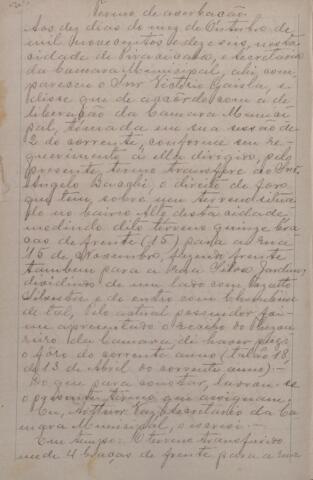 Termo de averbação
Aos dez dias do mez de Outubro de
mil novecentos e dezeseis, nesta
cidade de Piracicaba, e Secretaria
da Camara Municipal, ahi com-
pareceu o Snr Victorio Gazola, e
disse que de accôrdo com a de-
liberação da Camara Munici-
pal, tomada em sua sessão de
2 do corrente, conforme seu re-
querimento á ella dirigiro, pelo
presente termo transfere ao Snr.
Angelo o direito de fôro
que tem, sobre um terreno situa-
do no bairro Alto desta cidade,
medindo dito terreno quinze bra-
ças de frente (15) para a Rua
15 de Novembro, fazendo frente
tambem para a Rua Silva Jardim,
dividindo de um lado com
Silveira e de outro com
de tal, Pelo actual possuidor foi
me apresentado o recibo do Thezou-
reiro da Camara de haver pago
o fôro do corrente anno (talão 18,
de 13 de Abril do corrente anno).-
Do que para constar, lavrou-se
o presente termo que assignam.
Eu, Arthur Vaz, Secretario da Ca-
mara Municipal, escrevi.-
Em tempo: O terreno transferido
mede 4 braças de frente para a Rua